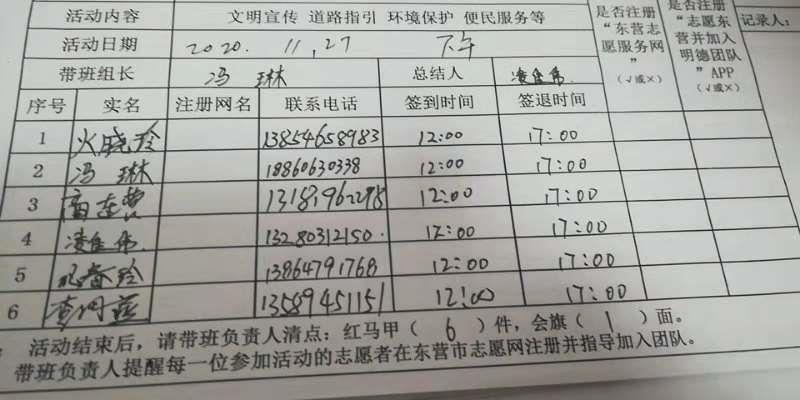 活动内容 文明宣传 道路指引 环境保护 便民服务等
是否注册“东营志愿服务网”(√或×)
是否注册“志愿东营并加入明德团队”APP(√或×)
记录人：
活动日期 2020.11,27 下午
带班组长 冯琳 总结人 凌佳伟
序号 实名 注册网名 联系电话 签到时间 签退时间
1 火晓玲 13854658983 12:00 17:00
2 冯琳 18860630338 12:00 17:00
3 13181962298 12:00 17:00
4 凌佳伟 13280312150 12:00 17:00
5 春玲 13864791768 12:00 17:00
6 13589451151 12:00 17:00
活动结束后，请带班负责人清点：红马甲（ 6 ）件，会旗（ 1 ）面。
带班负责人提醒每一位参加活动的志愿者在东营市志愿网注册并指导加入团队。